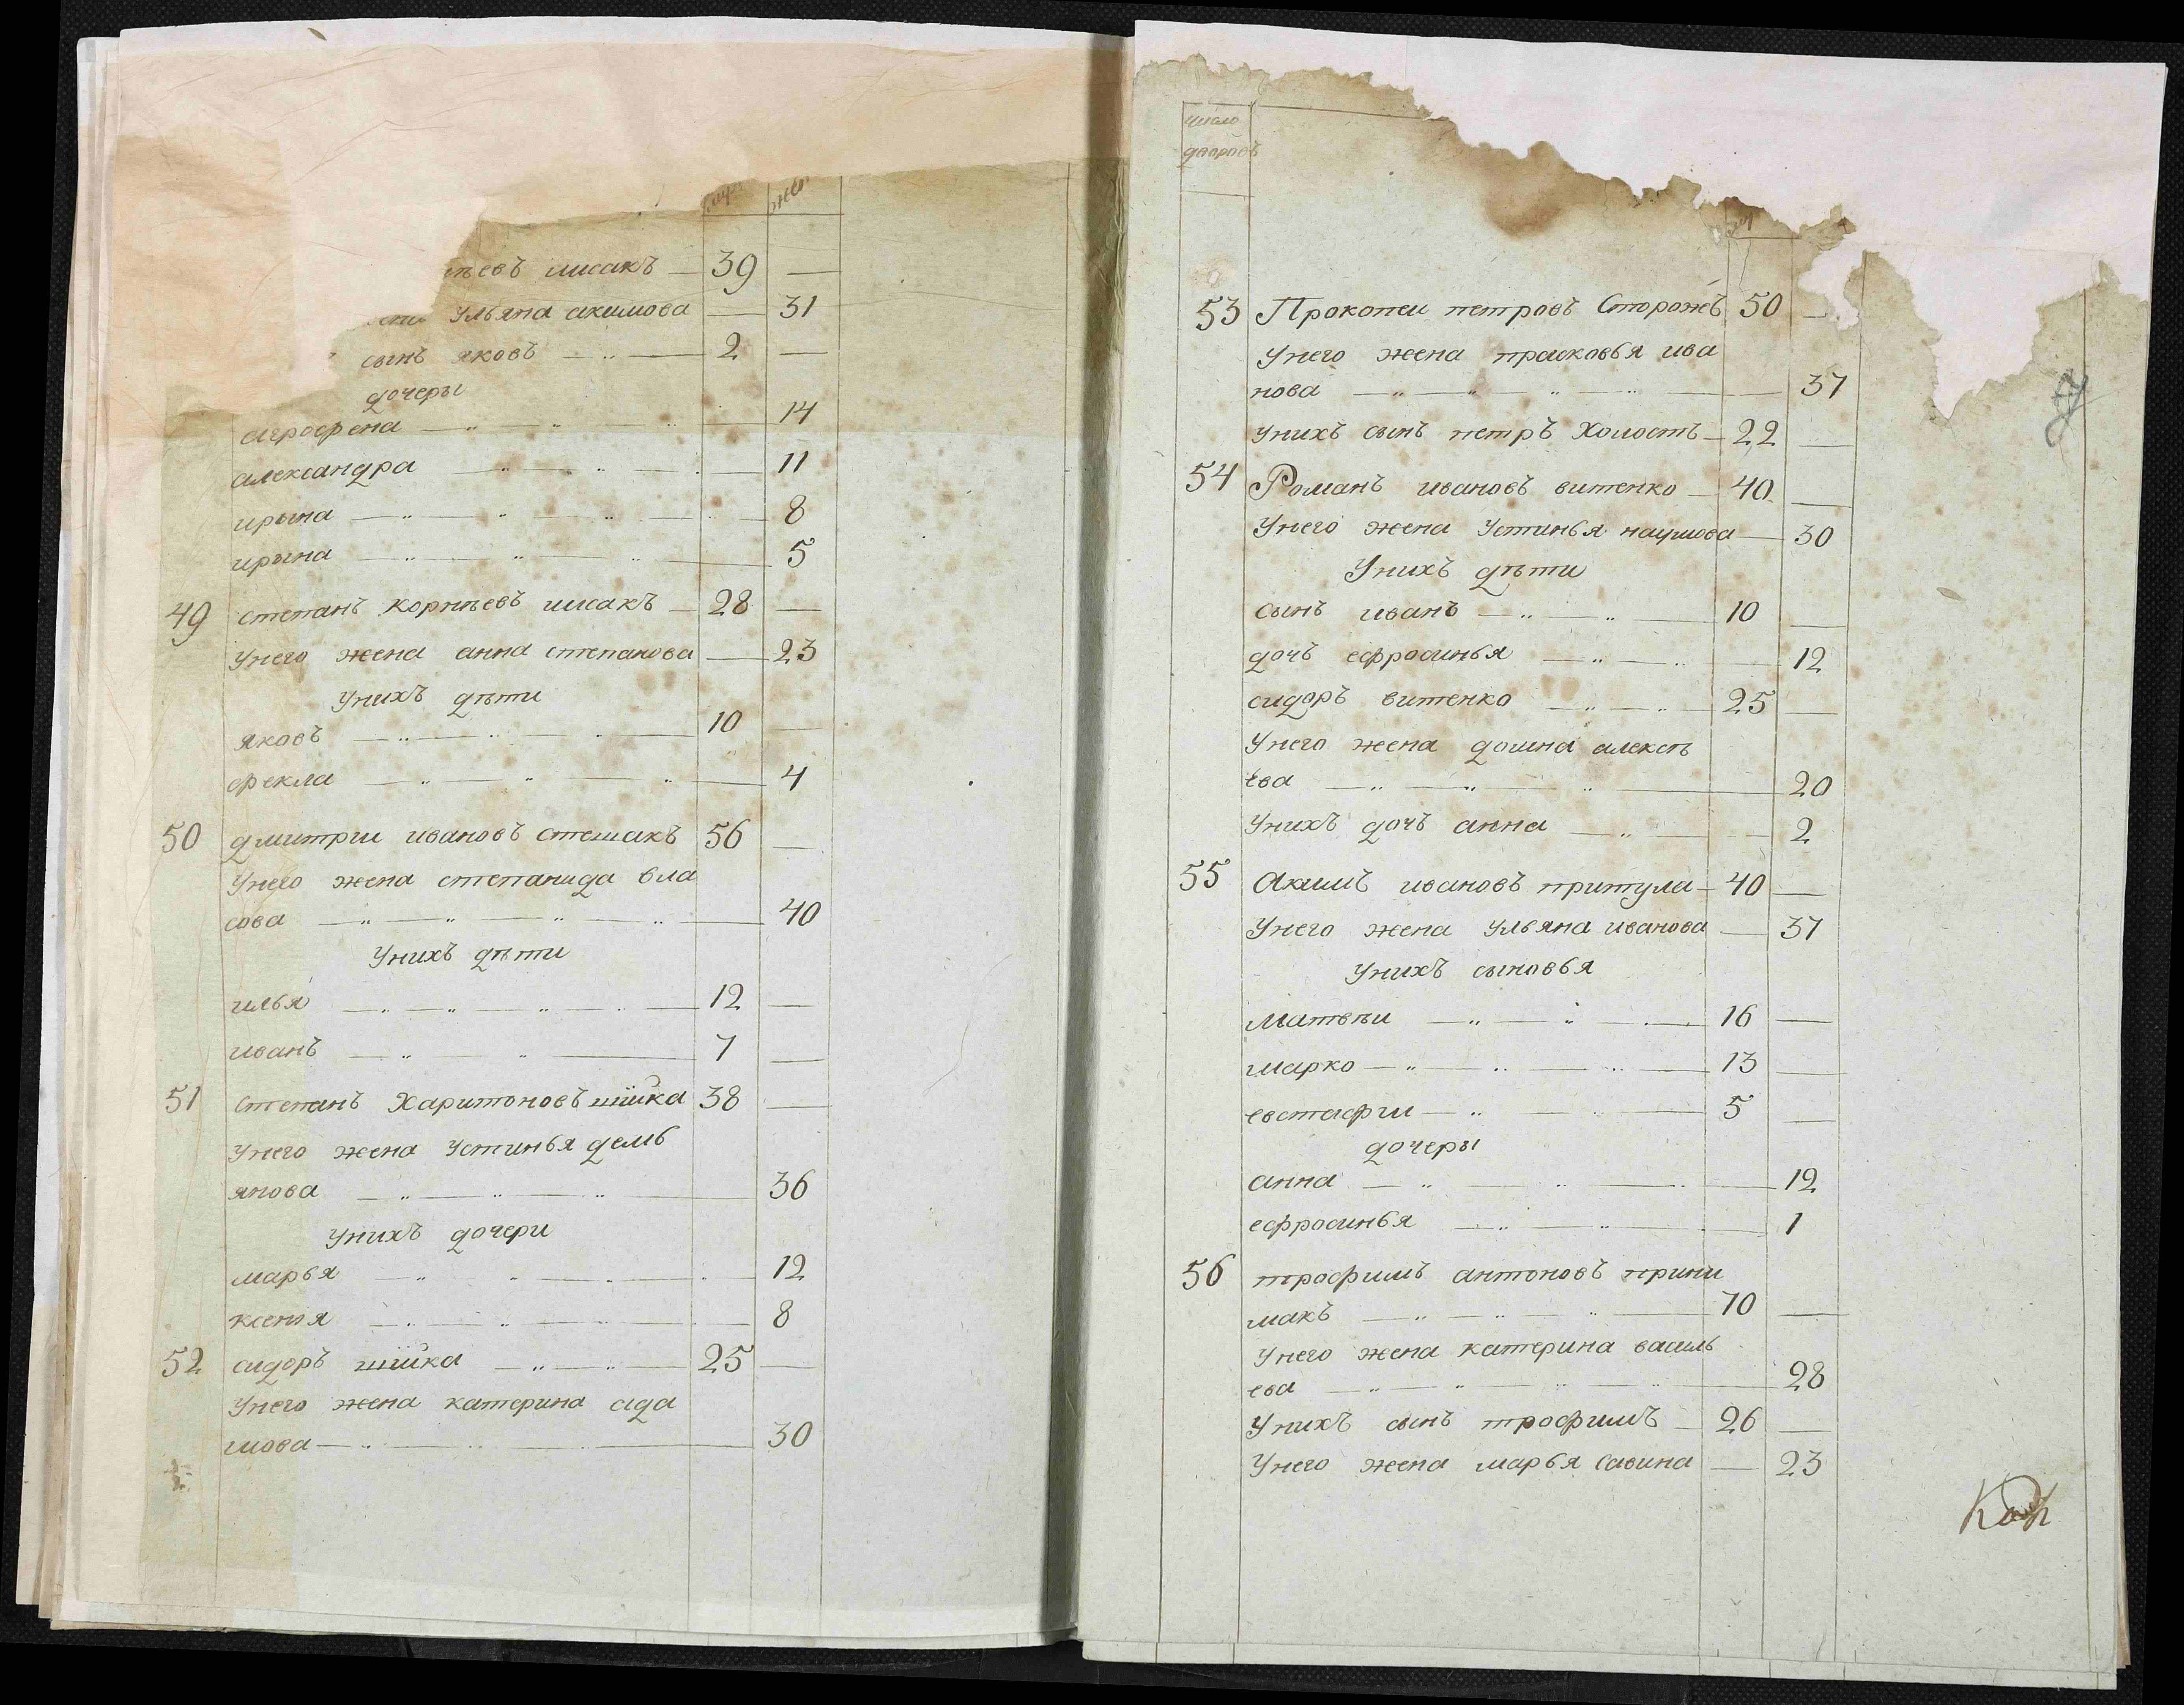 лисакъ — 39 —
ульяна акимова — 31
сынъ яковъ — 2 —
дочеры
агрофена — 14
александра — 11
ирына — 8
ирына — 5
49 степанъ корнѣевъ лисакъ — 28 —
Унего жена анна степанова — 23
Унихъ дѣти
яковъ — 10 —
фекла — 4
50 дмитрии ивановъ стешакъ 56 —
Унего жена степанида вла
сова — 40
Унихъ дѣти
илья — 12 —
иванъ — 7 —
51 степанъ Харитоновъ шійка 38 —
Унего жена Устинья демь
янова — 36
Унихъ дочери
марья — 12
ксенія — 8
52 сидоръ шійка — 25 —
Унего жена катерина ада
мова — 30
число
дворовъ
53 Прокопеи петровъ Сторожъ 50 —
Унего жена прасковья ива
нова — 37
Унихъ сынъ петръ Холостъ — 22 —
54 Романъ ивановъ витенко — 40 —
Унего жена Устинья наумова — 30
Унихъ дѣти
сынъ иванъ — 10 —
дочъ ефросинья — 12
сидоръ витенко — 25 —
Унего жена домна алексѣ
ева — 20
Унихъ дочъ анна — 2
55 Акимъ ивановъ притула — 40 —
Унего жена Ульяна иванова — 37
Унихъ сыновья
Матвѣи — 16 —
марко — 13 —
евстафии — 5 —
дочеры
анна — 12
ефросинья — 1
56 трофимъ антоновъ прини
макъ — 70 —
Унего жена катерина василь
ева — 28
Унихъ сынъ трофимъ — 26 —
Унего жена марья Савина — 23